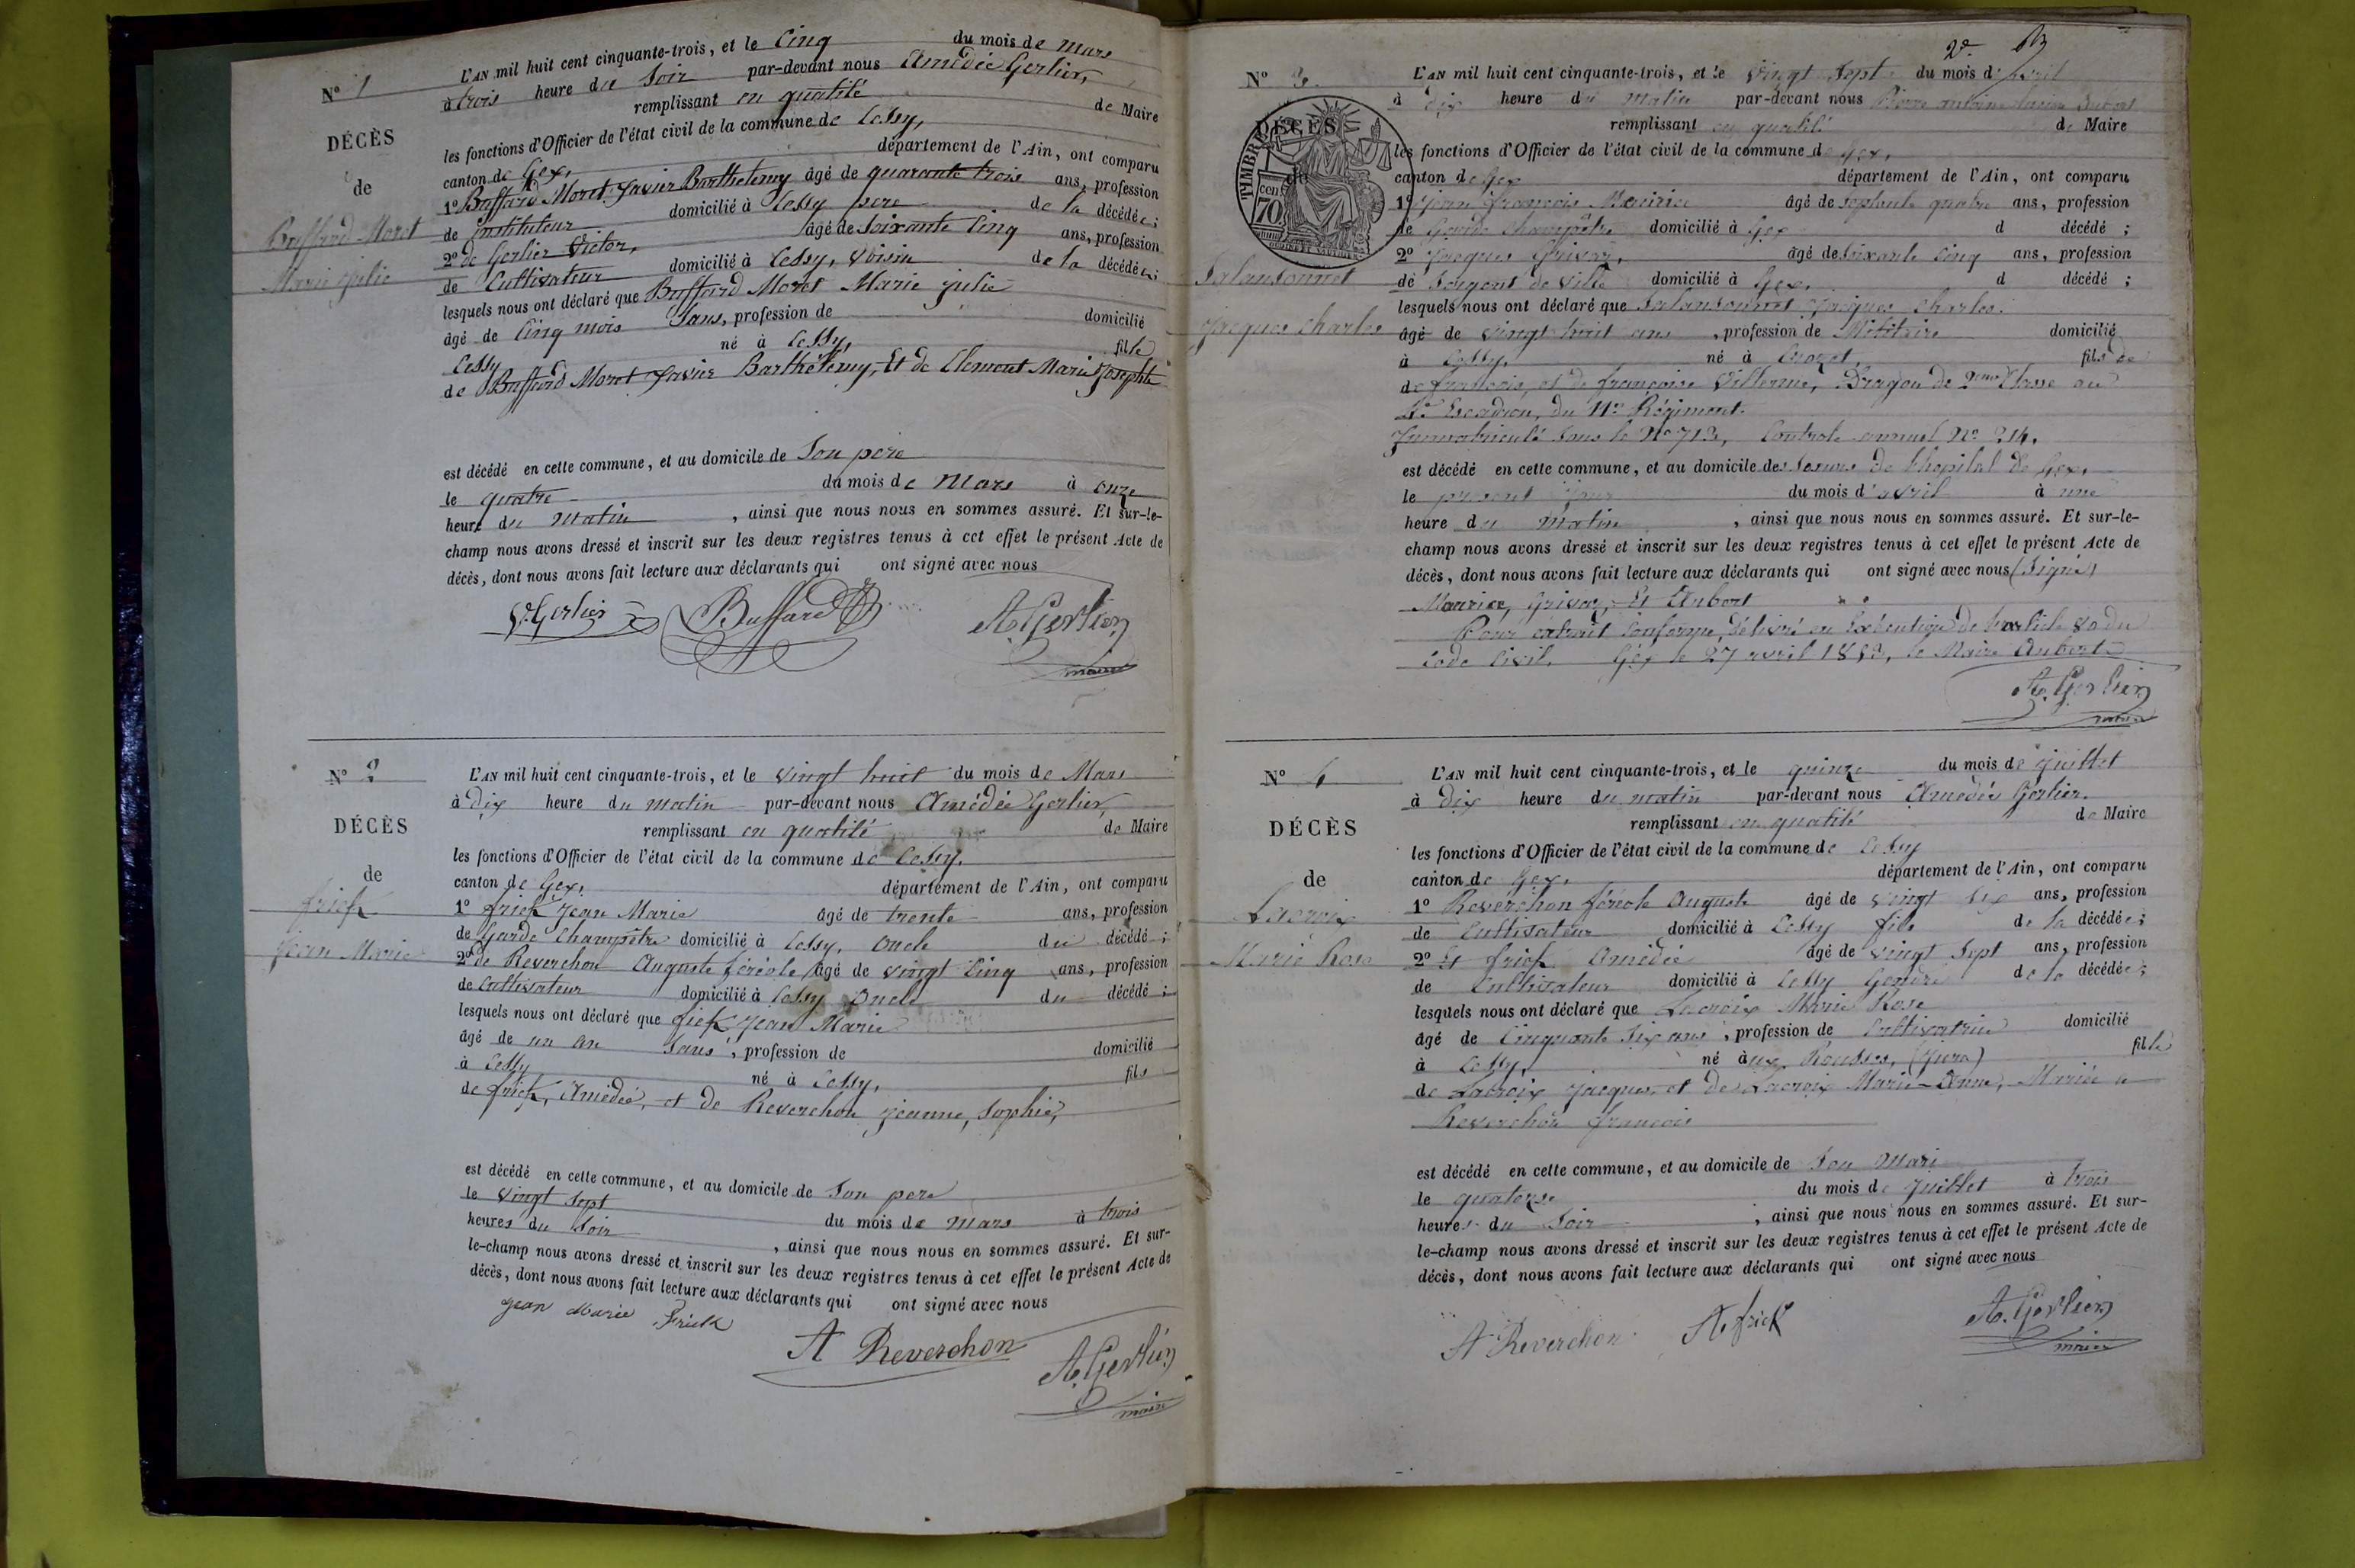 N° 1
DÉCÈS
de
Buffard-Moret
Marie Julie
L'AN mil huit cent cinquante-trois, et le Cinq du mois de Mars
à trois heure du Soir par-devant nous Amédée Gerlier,
remplissant en qualité de Maire
les fonctions d'Officier de l'état civil de la commune de Cessy,
canton de Gex, département de l'Ain, ont comparu
1° Buffard Moret Xavier Barthelemy âgé de quarante trois ans, profession
de instituteur domicilié à Cessy pere de la décédée;
2° de Gerlier Victor, âgé de Soixante Cinq ans, profession
de Cultivateur domicilié à Cessy, Voisin de la décédée;
lesquels nous ont déclaré que Buffard Moret Marie julie
âgé de Cinq mois Sans, profession de domicilié
Cessy né à Cessy, fille
de Buffard Moret Xavier Barthélemy, Et de Clement Marie Josephte
est décédé en cette commune, et au domicile de Son pere
le quatre du mois de Mars à onze
heure du Matin, ainsi que nous nous en sommes assuré. Et sur-le-
champ nous avons dressé et inscrit sur les deux registres tenus à cet effet le présent Acte de
décès, dont nous avons fait lecture aux déclarants qui ont signé avec nous
V. Gerlier Buffard A. Gerlier
maire
N° 2
DÉCÈS
de
frick
Jean Marie
L'AN mil huit cent cinquante-trois, et le vingt huit du mois de Mars
à dix heure du matin par-devant nous Amédée Gerlier,
remplissant en qualité de Maire
les fonctions d'Officier de l'état civil de la commune de Cessy,
canton de Gex, département de l'Ain, ont comparu
1° frick Jean Marie âgé de trente ans, profession
de Garde Champêtre domicilié à Cessy, Oncle du décédé;
2° de Reverchon Auguste féréole âgé de vingt Cinq ans, profession
de Cultivateur domicilié à Cessy Oncle du décédé;
lesquels nous ont déclaré que frick Jean Marie
âgé de un an Sans, profession de domicilié
à Cessy né à Cessy, fils
de frick, Amédée, et de Reverchon jeanne, Sophie,
est décédé en cette commune, et au domicile de Son pere
le vingt Sept du mois de mars à trois
heures du Soir, ainsi que nous nous en sommes assuré. Et sur-
le-champ nous avons dressé et inscrit sur les deux registres tenus à cet effet le présent Acte de
décès, dont nous avons fait lecture aux déclarants qui ont signé avec nous
jean Marie Frick
A Reverchon A. Gerlier
maire
2e
N° 3
DÉCÈS
de
TIMBRE
70 cen
Salansonnet
Jacques Charles
L'AN mil huit cent cinquante-trois, et le vingt Sept du mois d'avril
à dix heure du matin par-devant nous Pierre antoine
remplissant en qualité de Maire
les fonctions d'Officier de l'état civil de la commune de Gex,
canton de Gex département de l'Ain, ont comparu
1° Jean françois Maurice âgé de Septante quatre ans, profession
de Garde Champêtre domicilié à Gex d décédé;
2° Jacques Grivaz, âgé de Soixante Cinq ans, profession
de Sergent de Ville domicilié à Gex, d décédé;
lesquels nous ont déclaré que Salansonnet Jacques Charles.
âgé de vingt huit ans, profession de Militaire domicilié
à Cessy, né à Crozet, fils de
de françois, et de françoise Villerme, Dragon de 2eme Classe au
Escadron, du 11e Régiment.
Immatriculé sous le N° 713, Controle annuel N° 214.
est décédé en cette commune, et au domicile des Soeurs de l'hopital de Gex,
le présent jour du mois d'avril à une
heure du Matin, ainsi que nous nous en sommes assuré. Et sur-le-
champ nous avons dressé et inscrit sur les deux registres tenus à cet effet le présent Acte de
décès, dont nous avons fait lecture aux déclarants qui ont signé avec nous (Signé)
Maurice, Grivaz, Et Aubert
Pour extrait Conforme, délivré en Exécution de l'article 80 du
Code Civil. Gex le 27 avril 1853, le Maire Aubert
A. Gerlier
maire
N° 4
DÉCÈS
de
Lacroix
Marie Rose
L'AN mil huit cent cinquante-trois, et le quinze du mois de juillet
à dix heure du matin par-devant nous Amédée Gerlier.
remplissant en qualité de Maire
les fonctions d'Officier de l'état civil de la commune de Cessy
canton de Gex, département de l'Ain, ont comparu
1° Reverchon féréole Auguste âgé de vingt Six ans, profession
de Cultivateur domicilié à Cessy fils de la décédée;
2° Et frick Amédée âgé de vingt Sept ans, profession
de Cultivateur domicilié à Cessy Gendre de la décédée;
lesquels nous ont déclaré que Lacroix Marie Rose
âgé de Cinquante Six ans, profession de Cultivatrice domicilié
à Cessy, né aux Rousses, (Jura) fille
de Lacroix Jacques, et de Lacroix Marie-Anne, Mariée a
Reverchon françois
est décédé en cette commune, et au domicile de Son Mari
le quatorze du mois de juillet à trois
heures du Soir, ainsi que nous nous en sommes assuré. Et sur-
le-champ nous avons dressé et inscrit sur les deux registres tenus à cet effet le présent Acte de
décès, dont nous avons fait lecture aux déclarants qui ont signé avec nous
A Reverchon A. frick A. Gerlier
maire